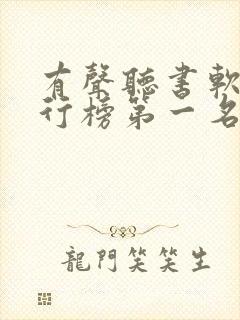 有聲聽書軟
行榜第一名
龍門笑笑生